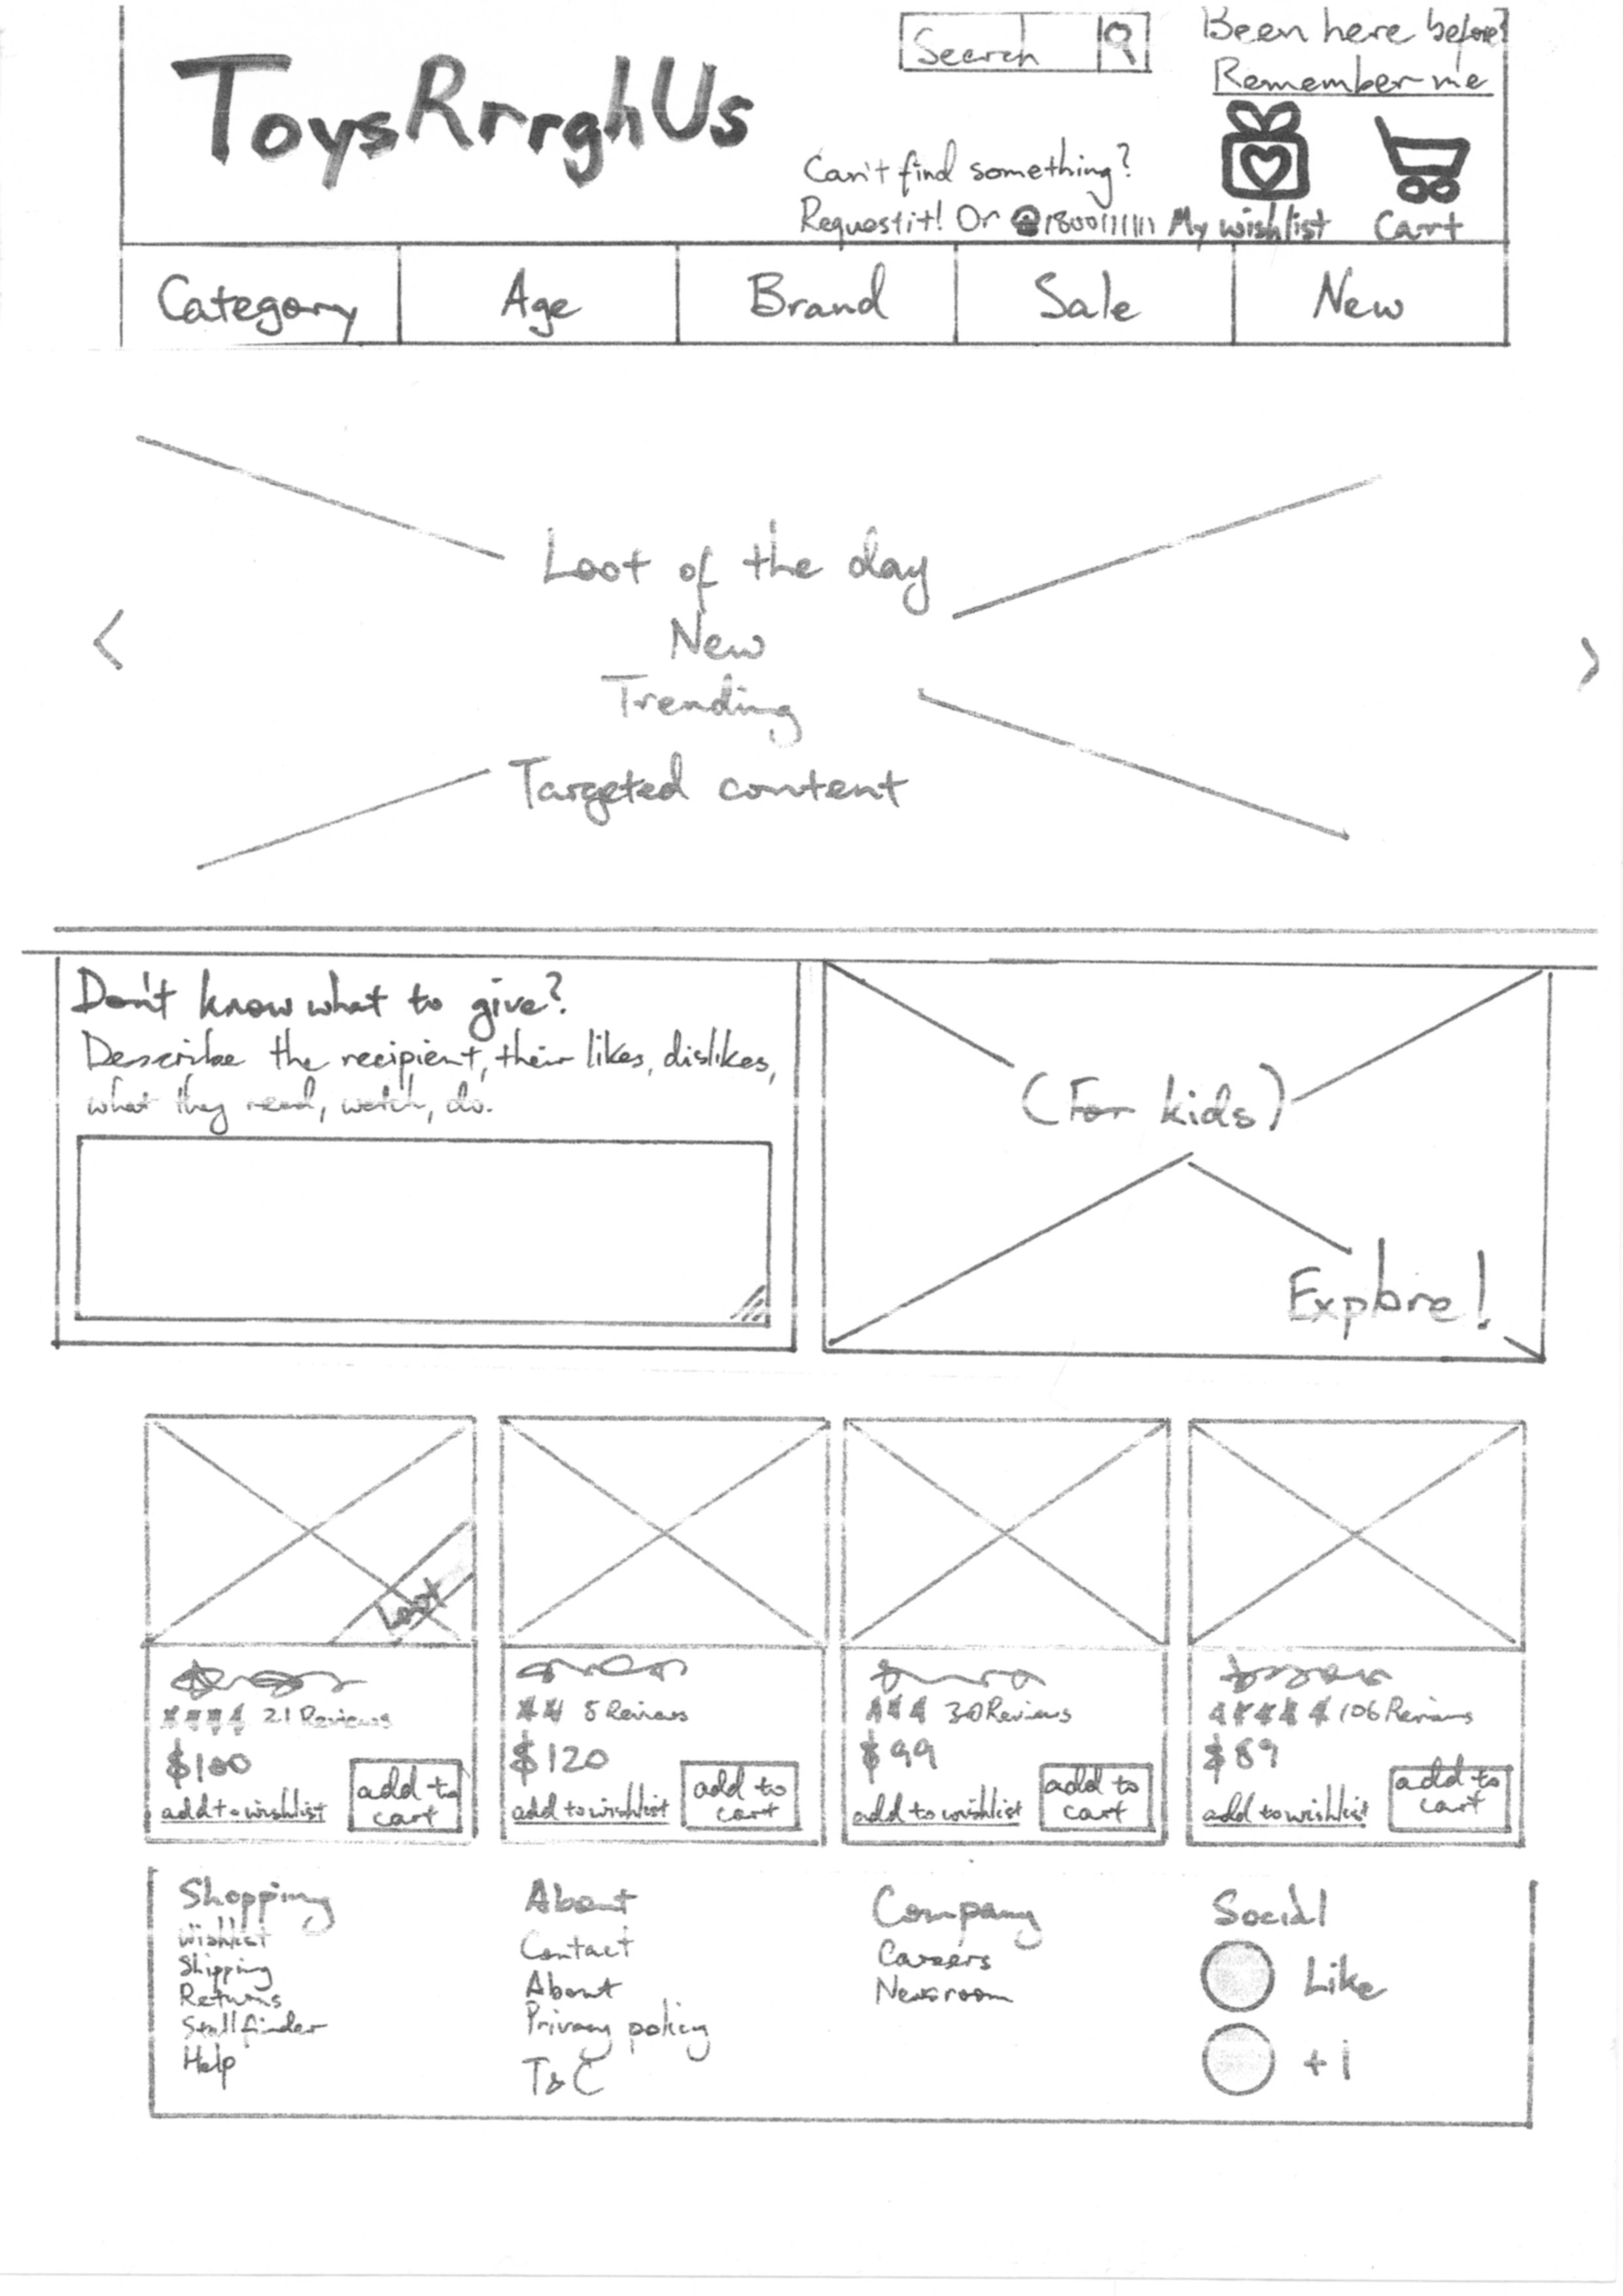 ToysRrrghUs
Search
Been here before?
Remember me
Can't find something?
Request it! Or ☎1800111111
My wishlist
Cart
Category
Age
Brand
Sale
New
Loot of the day
New
Trending
Targeted content
<
>
Don't know what to give?
Describe the recipient, their likes, dislikes,
what they read, watch, do.
(For kids)
Explore!
Loot
21 Reviews
$100
add to wishlist
add to
cart
8 Reviews
$120
add to wishlist
add to
cart
30 Reviews
$99
add to wishlist
add to
cart
106 Reviews
$89
add to wishlist
add to
cart
Shopping
Wishlist
Shipping
Returns
Stall finder
Help
About
Contact
About
Privacy policy
T&C
Company
Careers
Newsroom
Social
Like
+1